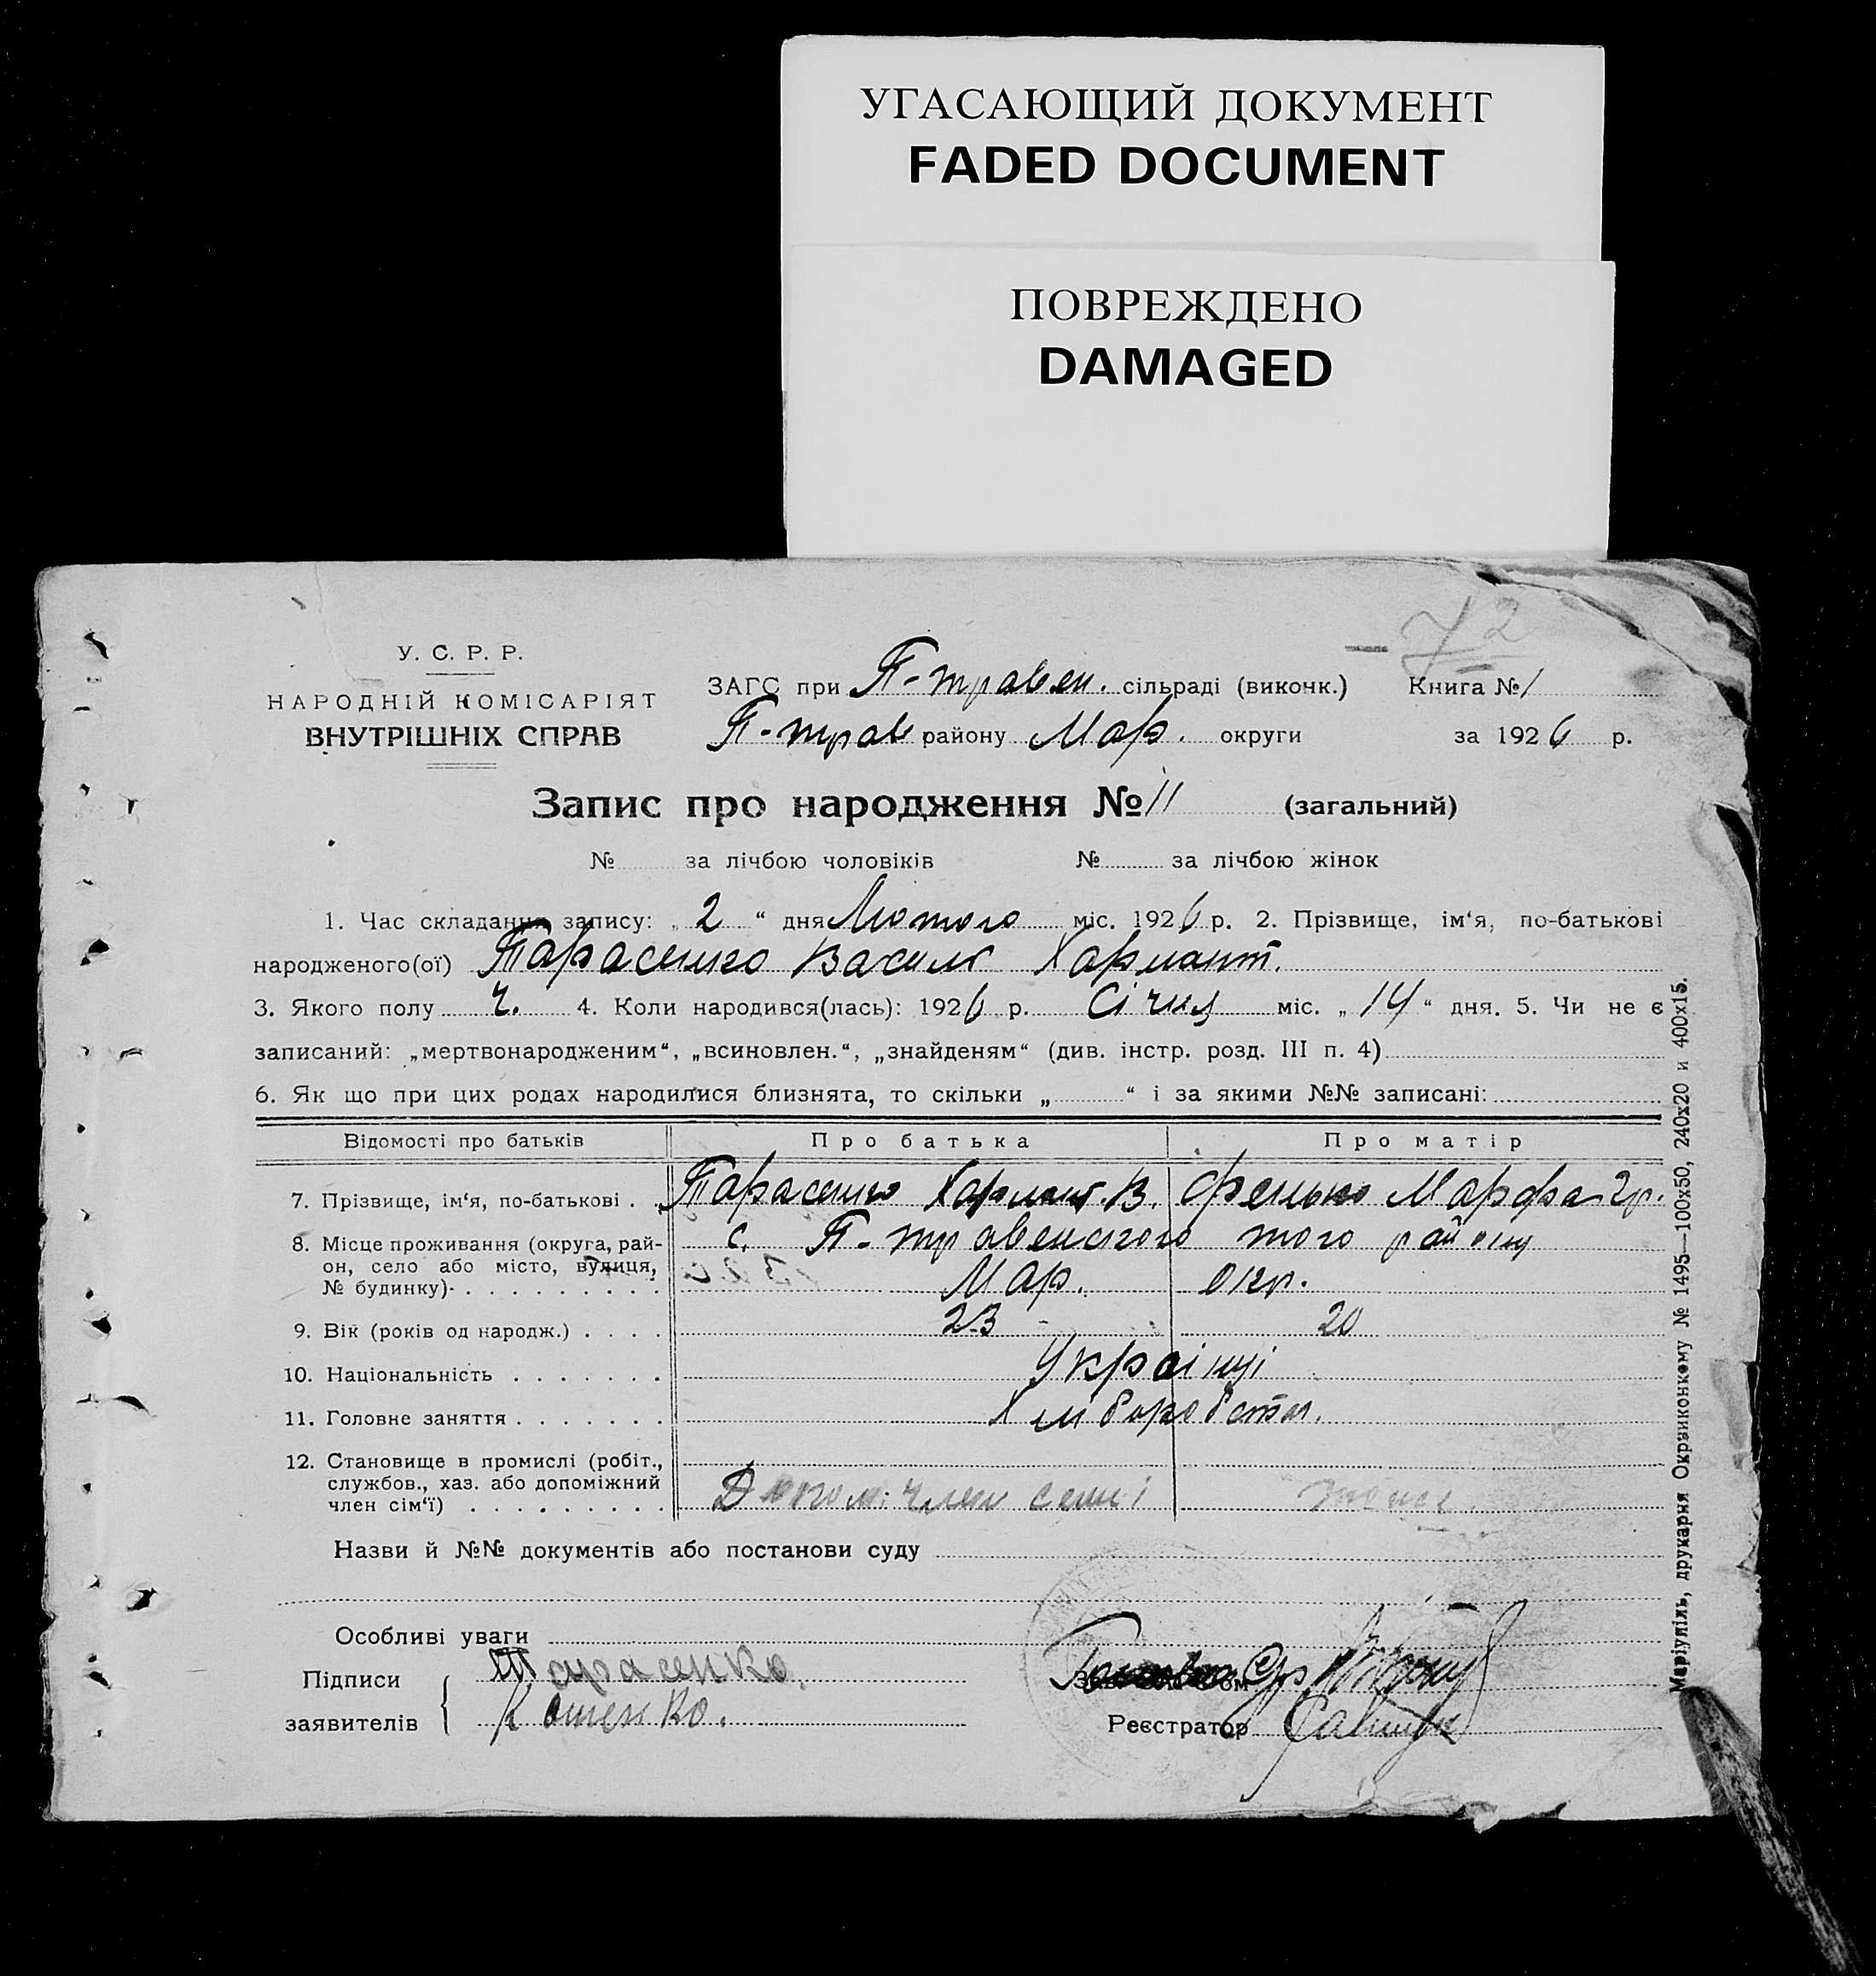 УГАСАЮЩИЙ ДОКУМЕНТ
FADED DOCUMENT
ПОВРЕЖДЕНО
DAMAGED
72
У. С. Р. Р.
НАРОДНІЙ КОМІСАРІЯТ
ВНУТРІШНІХ СПРАВ
ЗАГС при П-травен. сільраді (виконк.) Книга № 1
П-трав району Мар. округи за 1926 р.
Запис про народження № 11 (загальний)
№ за лічбою чоловіків № за лічбою жінок
1. Час складання запису: „ 2 “ дня Лютого міс. 1926 р. 2. Прізвище, ім‘я, по-батькові
народженого(ої) Тарасенко Василь Харлант.
3. Якого полу ч. 4. Коли народився(лась): 1926 р. Січня міс. „ 14 “ дня. 5. Чи не є
записаний: „мертвонародженим“, „всиновлен.“, „знайденям“ (див. інстр. розд. III п. 4)
6. Як що при цих родах народилися близнята, то скільки „ “ і за якими №№ записані:
Відомості про батьків Про батька Про матір
7. Прізвище, ім‘я, по-батькові . . Тарасенко Харлант. В. Марфа Гр.
8. Місце проживання (округа, рай- с. П-травенского того району
он, село або місто, вулиця,
№ будинку)- . . . . . . . . . Мар. окр.
9. Вік (років од народж.) . . . . 23 20
10. Національність . . . . . . . Українці
11. Головне заняття . . . . . . . Хліборобств.
12. Становище в промислі (робіт.,
службов., хаз. або допоміжний
член сім‘ї) . . . . . . . . . Допом. член семї
Назви й №№ документів або постанови суду
Особливі уваги
Підписи Тарасенко.
заявителів Котенко.
Реєстратор
Маріупіль, друкарня Окрвиконкому № 1495—100х50, 240х20 и 400х15.